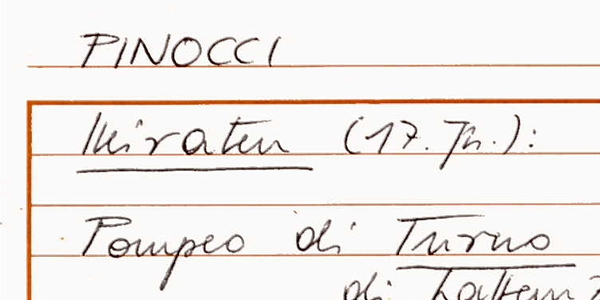 PINOCCI
Heiraten (17. Jh.):
Pompeo di Turno
di